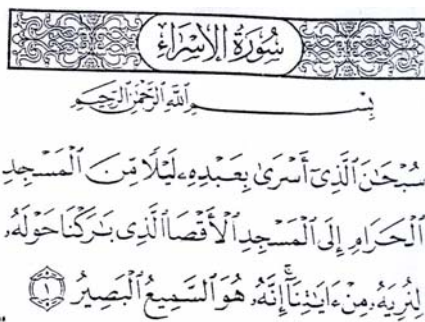 سُورَةُ الإِسْرَاءِ
بِسْمِ ٱللَّهِ ٱلرَّحْمَٰنِ ٱلرَّحِيمِ
سُبْحَٰنَ ٱلَّذِىٓ أَسْرَىٰ بِعَبْدِهِۦ لَيْلًا مِّنَ ٱلْمَسْجِدِ
ٱلْحَرَامِ إِلَى ٱلْمَسْجِدِ ٱلْأَقْصَا ٱلَّذِى بَٰرَكْنَا حَوْلَهُۥ
لِنُرِيَهُۥ مِنْ ءَايَٰتِنَآ ۚ إِنَّهُۥ هُوَ ٱلسَّمِيعُ ٱلْبَصِيرُ ١